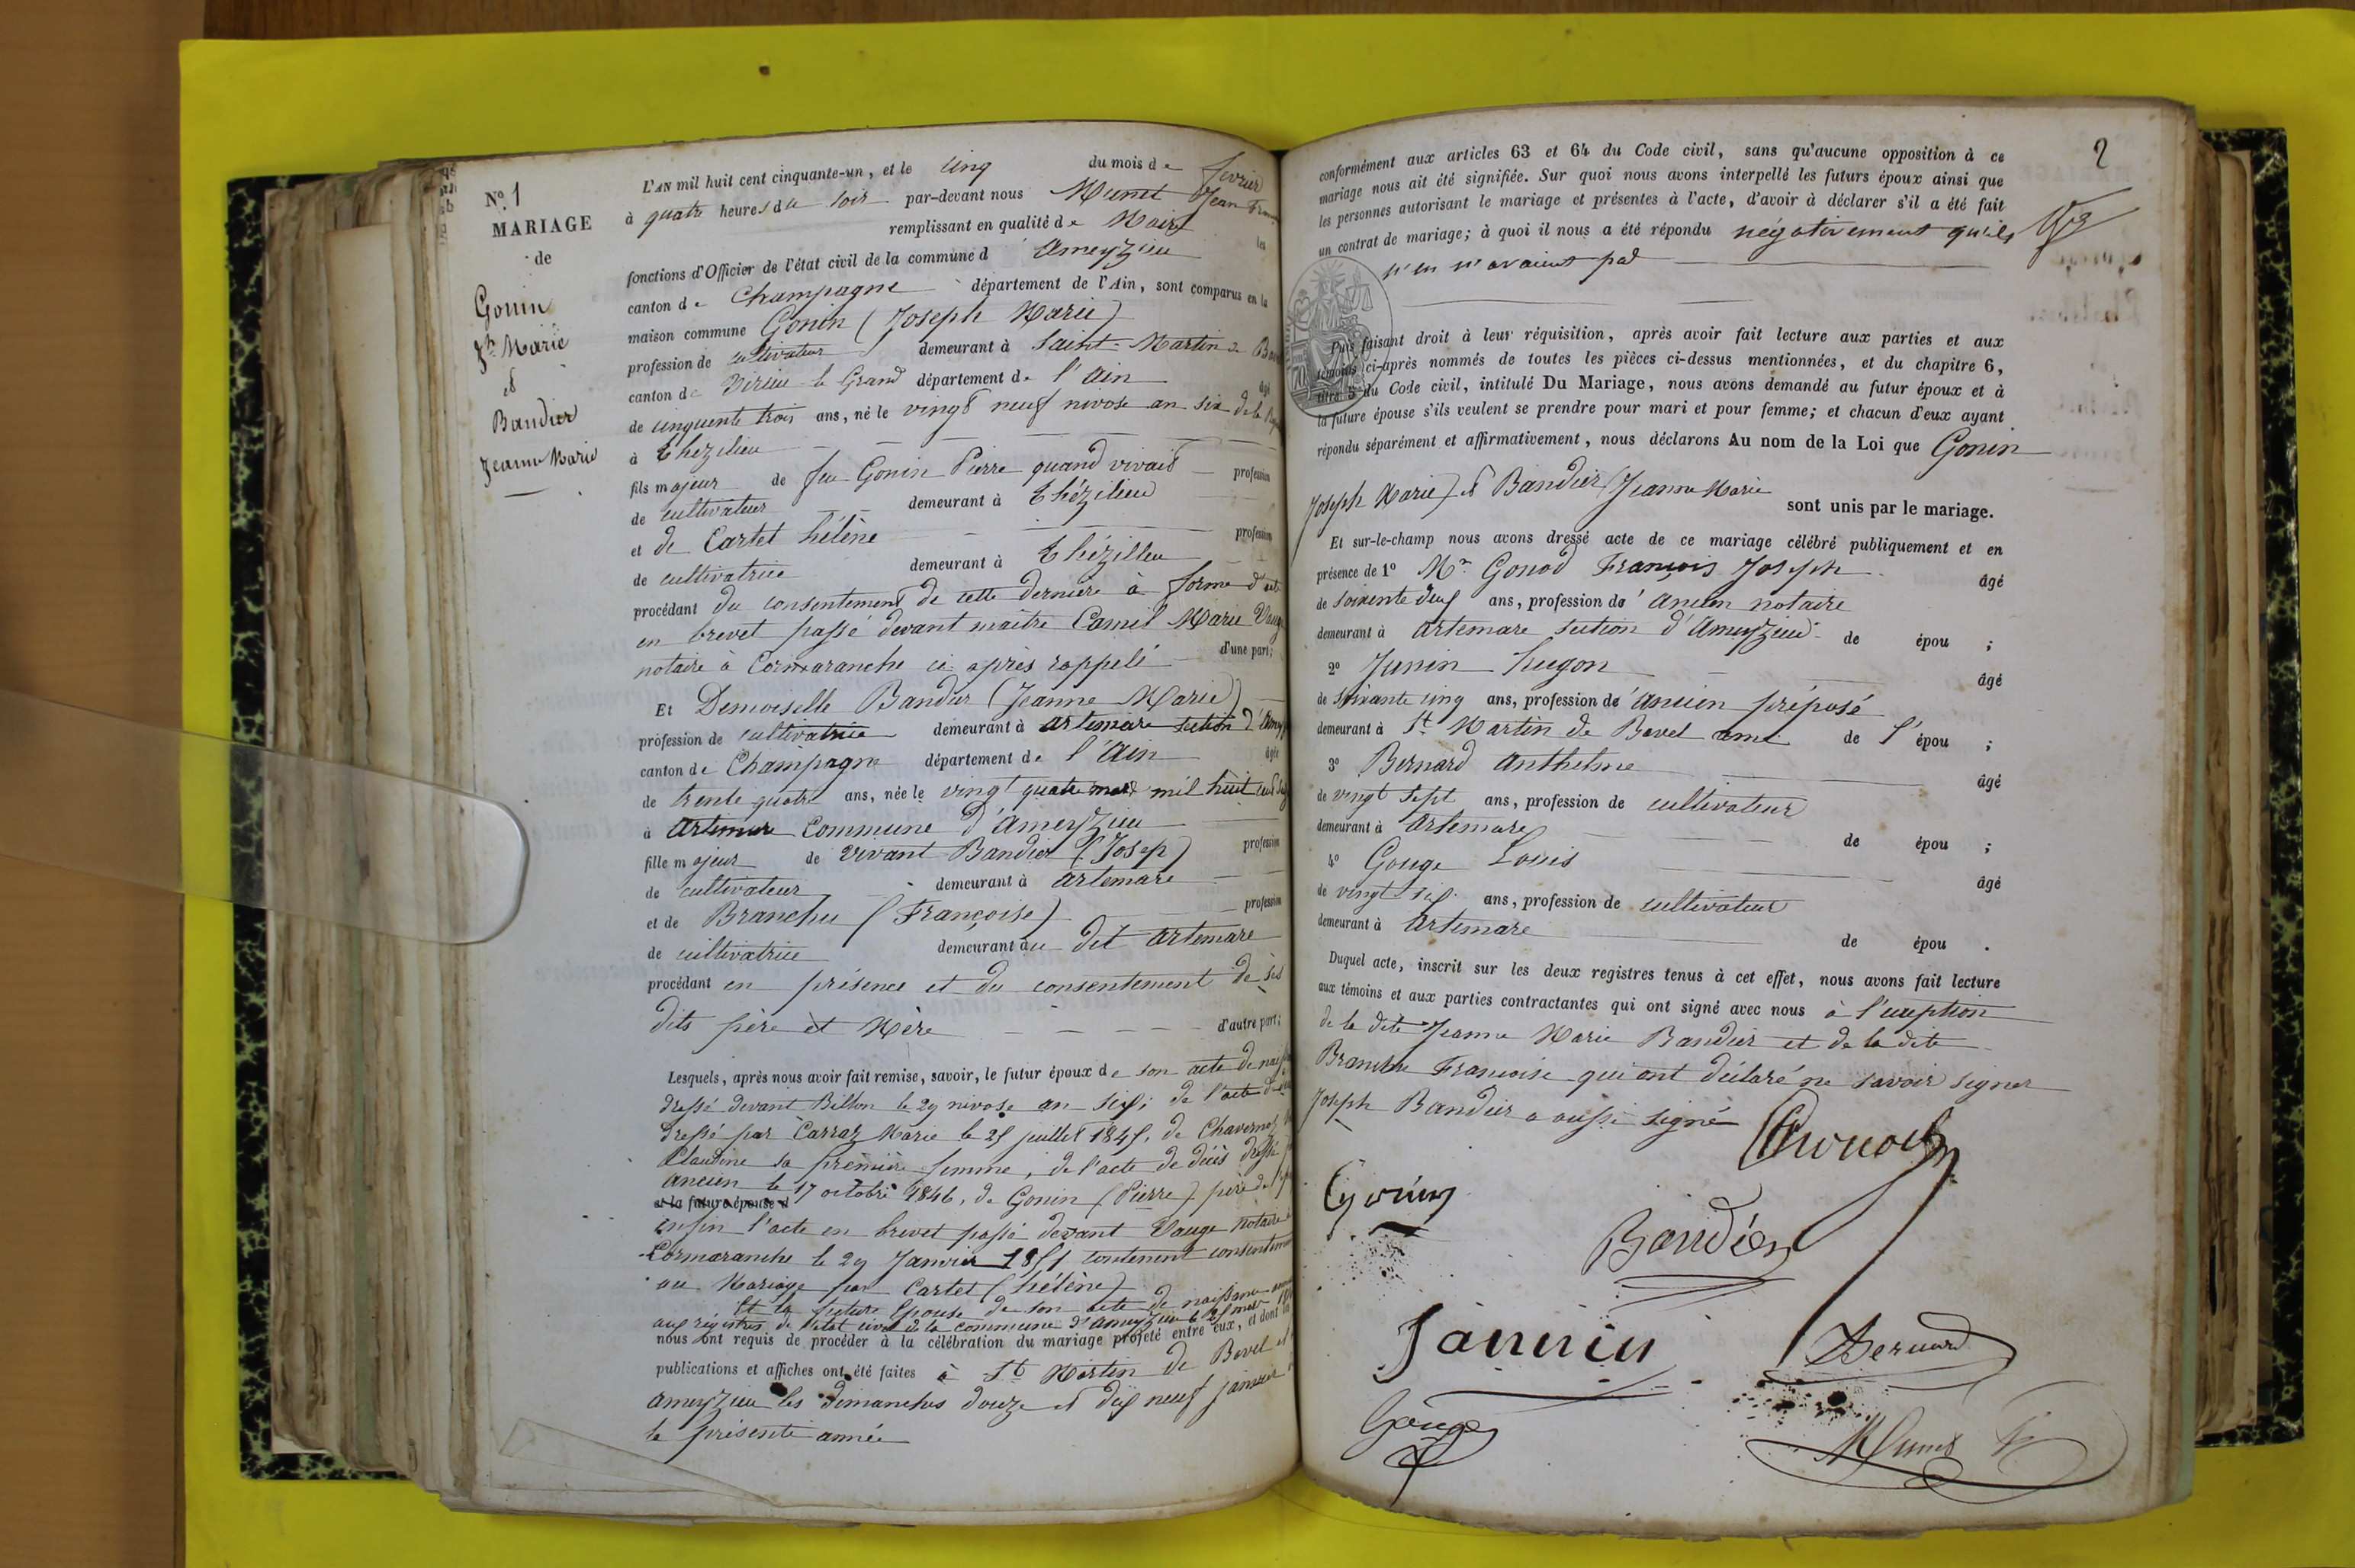 N.º 1
MARIAGE
de
Gonin
Jh Marie
et
Bandier
Jeanne Marie
L'AN mil huit cent cinquante-un, et le cinq du mois de fevrier
à quatre heures du soir par-devant nous Munet Jean
remplissant en qualité de Maire les
fonctions d'Officier de l'état civil de la commune d'Ameyzieu
canton de Champagne département de l'Ain, sont comparus en la
maison commune Gonin (Joseph Marie)
profession de cultivateur demeurant à Saint-Martin de
canton de Virieu le Grand département de l'Ain âgé
de cinquente trois ans, né le vingt neuf nivose an six de la
à Thezilieu
fils majeur de feu Gonin Pierre quand vivait profession
de cultivateur demeurant à Thézilieu
et de Cartet hélène profession
de cultivatrice demeurant à Thézillieu
procédant du consentement de cette dernière à forme d'acte
en brevet passé devant maitre Camil Marie Vauge
notaire à Cormaranche ci après rappelé d'une part;
Et Demoiselle Bandier (Jeanne Marie)
profession de cultivatrice demeurant à artemare section d'
canton de Champagne département de l'Ain âgée
de trente quatre ans, née le vingt quatre mars mil huit cent
à Artemare Commune d'Ameyzieu
fille majeur de vivant Bandier (Josep) profession
de cultivateur demeurant à artemare
et de Branche (Françoise) profession
de cultivatrice demeurant au dit artemare
procédant en présence et du consentement de ses
dits père et Mère d'autre part;
Lesquels, après nous avoir fait remise, savoir, le futur époux de son acte de
dressé devant Billon le 29 nivose an six; de l'acte de
dressé par Carraz Marie le 25 juillet 1845, de Chavernoz
Claudine sa première femme, de l'acte de décès dressé
ancien le 17 octobre 1846, de Gonin (Pierre) père de
et la future épouse d
enfin l'acte en brevet passé devant Vauge notaire
Cormaranche le 29 Janvier 1851 contenent
au Mariage par Cartet (hélène)
Et la future Epouse de son acte de naissance
aux régistres de l'état civil de la commune d'Ameyzieu le 25 mars
nous ont requis de procéder à la célébration du mariage projeté entre eux, et dont
publications et affiches ont été faites à St Martin de Bavel et
ameyzieu les dimanches douze et dix neuf janvier
la présente année
2
conformément aux articles 63 et 64 du Code civil, sans qu'aucune opposition à ce
mariage nous ait été signifiée. Sur quoi nous avons interpellé les futurs époux ainsi que
les personnes autorisant le mariage et présentes à l'acte, d'avoir à déclarer s'il a été fait
un contrat de mariage; à quoi il nous a été répondu négativement qu'ils
n'en n'avaient pas
Puis faisant droit à leur réquisition, après avoir fait lecture aux parties et aux
témoins ci-après nommés de toutes les pièces ci-dessus mentionnées, et du chapitre 6,
titre 5 du Code civil, intitulé Du Mariage, nous avons demandé au futur époux et à
la future épouse s'ils veulent se prendre pour mari et pour femme; et chacun d'eux ayant
répondu séparément et affirmativement, nous déclarons Au nom de la Loi que Gonin
Joseph Marie) et Bandier (Jeanne Marie
sont unis par le mariage.
Et sur-le-champ nous avons dressé acte de ce mariage célébré publiquement et en
présence de 1º Mr Gonod François Joseph âgé
de soixente deux ans, profession d'ancien notaire
demeurant à artemare section d'Ameyzieu de épou ;
2º Junin hugon âgé
de soixante cinq ans, profession d'ancien préposé
demeurant à St Martin de Bavel ami de l'épou ;
3º Bernard Anthelme âgé
de vingt sept ans, profession de cultivateur
demeurant à Artemare de épou ;
4º Gouge Louis âgé
de vingt six ans, profession de cultivateur
demeurant à Artemare de épou .
Duquel acte, inscrit sur les deux registres tenus à cet effet, nous avons fait lecture
aux témoins et aux parties contractantes qui ont signé avec nous à l'exeption
de la dite Jeanne Marie Bandier et de la dite
Branche Francoise qui ont déclaré ne savoir signer
Joseph Bandier a aussi signé
Gonin
Bandier
Jannin
Bernard
Gouge
Munet